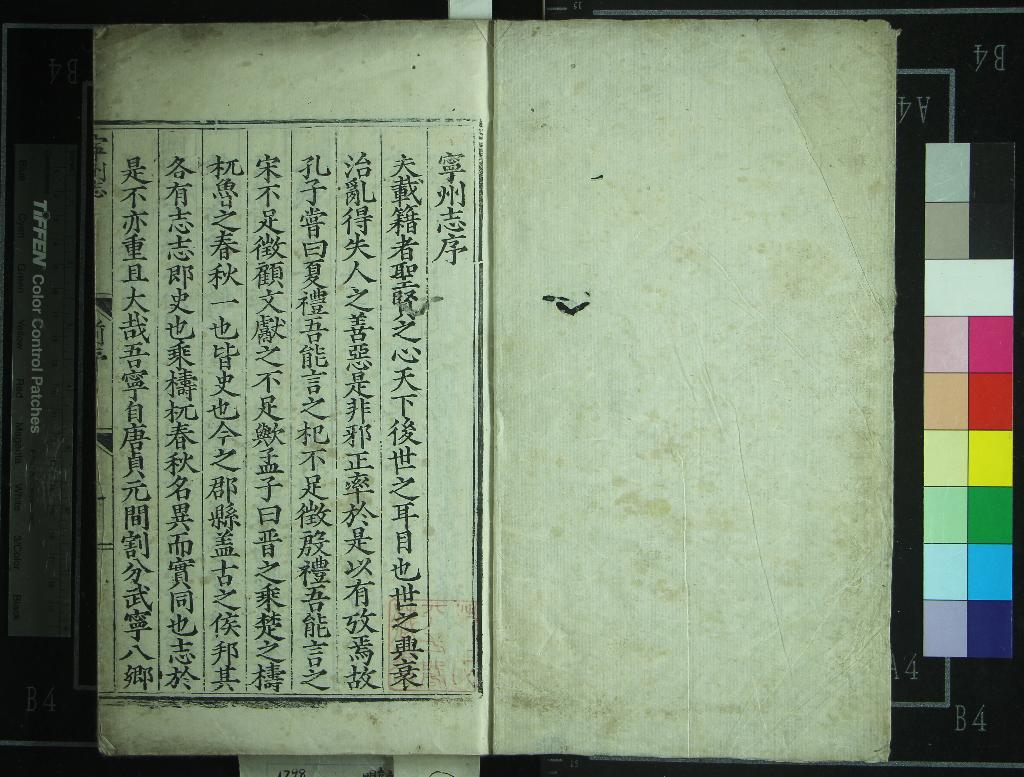 寧州志序
夫載籍者聖賢之心天下後世之耳目也世之興衰
治亂得失人之善惡是非邪正率於是以有攷焉故
孔子嘗曰夏禮吾能言之杞不足徴殷禮吾能言之
宋不足徴顧文獻之不足歟孟子曰晋之乘楚之檮
杌魯之春秋一也皆史也今之郡縣盖古之侯邦其
各有志志即史也乘檮杌春秋名異而實同也志於
是不亦重且大哉吾寧自唐貞元間割分武寧八鄉
寧州志
前序
TIFFEN Color Control Patches
Blue Cyan Green Yellow Red Magenta White 3/Color Black
B4
B4
A4
A4
B4
B4
15
15
1798